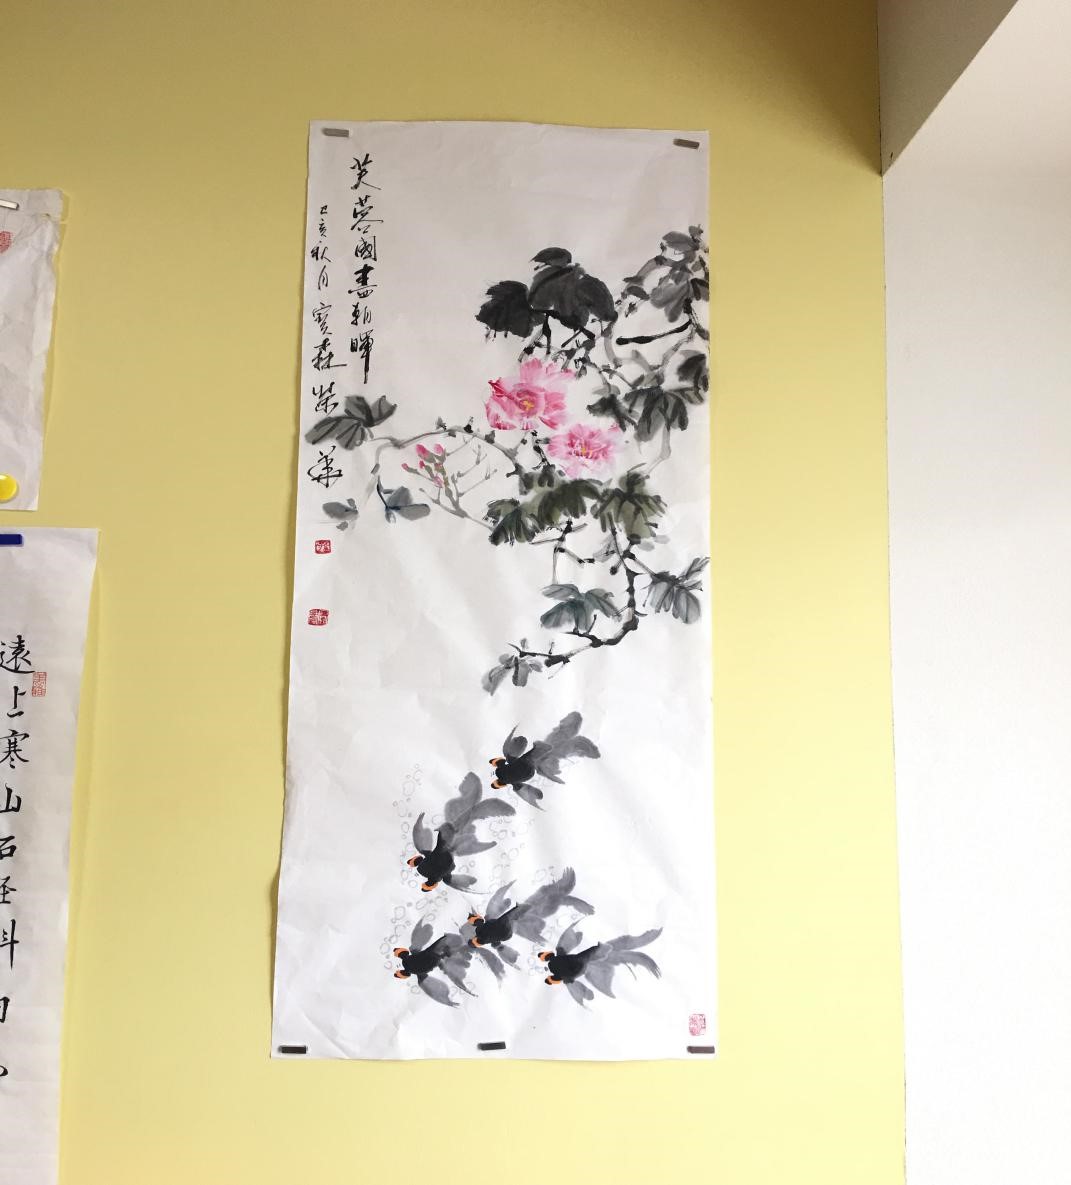 芙蓉國盡朝暉
己亥秋月寶森榮華
遠上寒山石径斜白